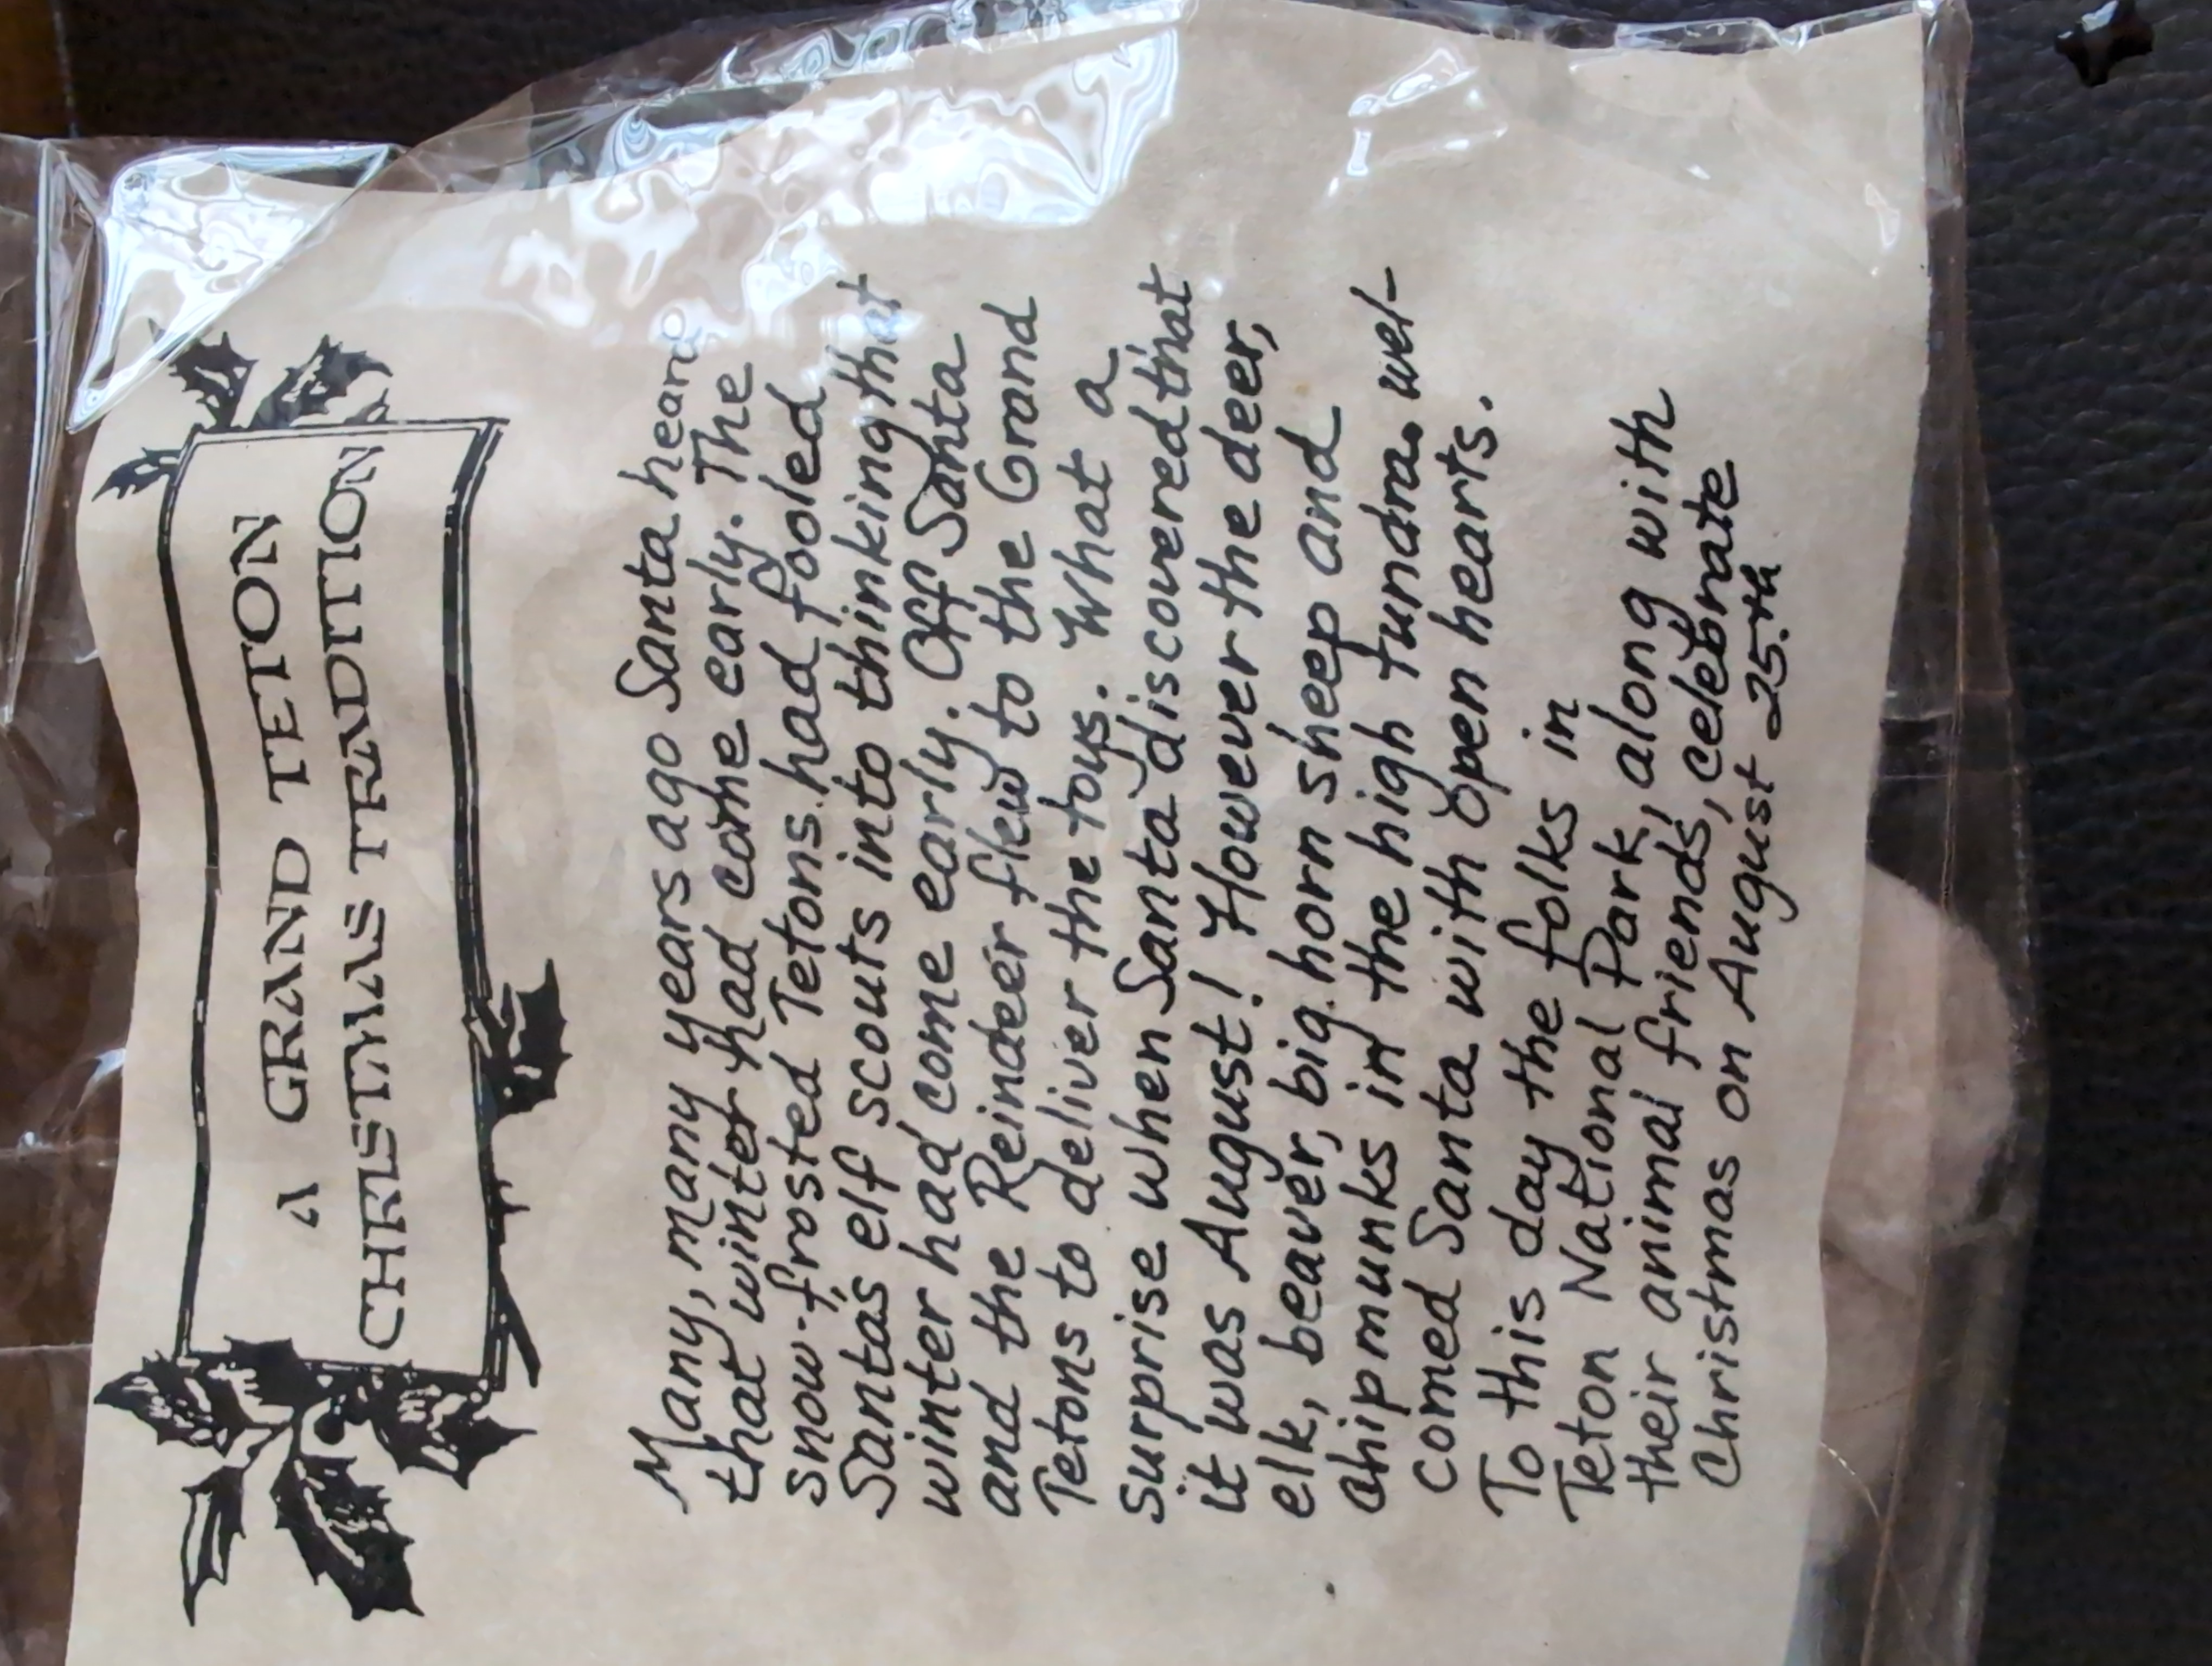 A GRAND TETON
CHRISTMAS TRADITION
Many, many years ago Santa heard
that winter had come early. The
snow-frosted Tetons had fooled
Santas elf scouts into thinking that
winter had come early. Off Santa
and the Reindeer flew to the Grand
Tetons to deliver the toys. What a
surprise when Santa discovered that
it was August! However the deer,
elk, beaver, big horn sheep and
chipmunks in the high tundra wel-
comed Santa with open hearts.
To this day the folks in
Teton National Park, along with
their animal friends, celebrate
Christmas on August 25.th